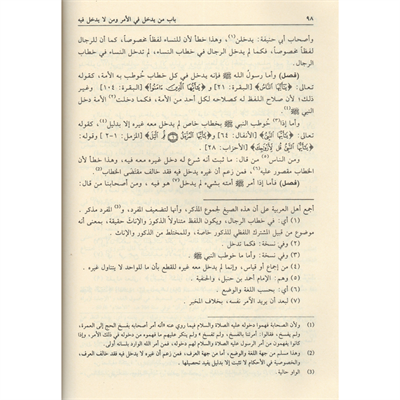 ٩٨ باب من يدخل في الأمر ومن لا يدخل فيه
وأصحاب أبي حنيفة: يدخلن(١)، وهذا خطأ لأن للنساء لفظاً مخصوصاً، كما أن للرجال
لفظاً مخصوصاً، فكما لم يدخل الرجال في خطاب النساء، لم تدخل النساء في خطاب
الرجال.
(فصل) وأما رسول الله ﷺ فإنه يدخل في كل خطاب خوطب به الأمة، كقوله
تعالى: ﴿يَٰٓأَيُّهَا ٱلنَّاسُ﴾ [البقرة: ٢١] و ﴿يَٰٓأَيُّهَا ٱلَّذِينَ ءَامَنُوا۟﴾ [البقرة: ١٠٤] وغير
ذلك؛ لأن صلاح اللفظ له كصلاحه لكل أحد من الأمة، فكما دخلت(٢) الأمة دخل
النبي ﷺ
وأما إذا(٣) خوطب النبي ﷺ بخطاب خاص لم يدخل معه غيره إلا بدليل(٤)، كقوله
تعالى: ﴿يَٰٓأَيُّهَا ٱلنَّبِىُّ﴾ [الأنفال: ٦٤] و ﴿يَٰٓأَيُّهَا ٱلْمُزَّمِّلُ قُمِ ٱلَّيْلَ﴾ [المزمل: ١-٢] وقوله:
﴿يَٰٓأَيُّهَا ٱلنَّبِىُّ قُل لِّأَزْوَٰجِكَ﴾ [الأحزاب: ٢٨].
ومن الناس(٥) من قال: ما ثبت أنه شرع له دخل غيره معه فيه، وهذا خطأ لأن
الخطاب مقصور عليه(٦)، فمن زعم أن غيره يدخل فيه فقد خالف مقتضى الخطاب
(فصل) فأما إذا أمر ﷺ أمته بشيء لم يدخل(٧) هو فيه، ومن أصحابنا من قال:
أجمع أهل العربية على أن هذه الصيغ لجموع المذكر، وأنها لتضعيف المفرد، والمفرد مذكر.
(١) أي: في خطاب الرجال، ويكون اللفظ متناولاً الذكور والإناث حقيقة، بمعنى أنه
موضوع من قبيل المشترك اللفظي للذكور خاصة، وللمختلط من الذكور والإناث.
(٢) وفي نسخة: فكما تدخل.
(٣) وفي نسخة: وأما ما خوطب النبي ﷺ
(٤) من إجماع أو قياس، وإنما لم يدخل معه غيره للقطع بأن ما للواحد لا يتناول غيره.
(٥) وهم: الإمام أحمد بن حنبل، والحنفية.
(٦) أي: بحسب اللغة والوضع.
(٧) لبعد أن يريد الآمر نفسه، بخلاف المخبر.
(1) ولأن الصحابة فهموا دخوله عليه الصلاة والسلام فيما روي عنه أنه أمر أصحابه بفسخ الحج إلى العمرة،
ولم يفسخ، فقالوا: أمرتنا بالفسخ، ولم تفسخ، ولم ينكر عليهم ما فهموه من دخوله في ذلك الأمر، وإذا
كانوا يفهمون من أمر الرسول عليه الصلاة والسلام لهم دخوله، فمن أمر الله الوارد بلسانه أولى.
(2) وهذا مسلم من جهة اللغة والوضع، أما من جهة العرف، فمن زعم أن غيره لا يدخل فيه فقد خالف العرف،
والخصوصية في الأحكام لا تثبت إلا بدليل يفيد تحصيلها.
(3) الواو حالية.